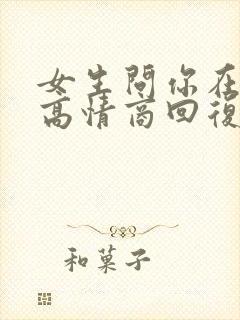 女生問你在
高情商回復
和菓子